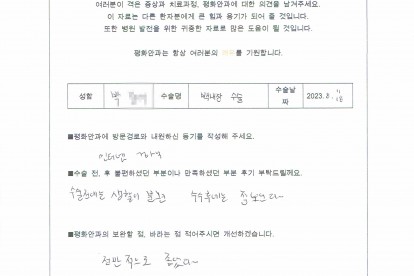 여러분이 겪은 증상과 치료과정, 평화안과에 대한 의견을 남겨주세요.
이 자료는 다른 환자분에게 큰 힘과 용기가 되어 줄 것입니다.
또한 병원 발전을 위한 귀중한 자료로 많은 도움이 될 것입니다.
평화안과는 항상 여러분의 를 기원합니다.
성함 박 수술명 백내장 수술 수술날짜 2023. 8.
■평화안과에 방문경로와 내원하신 동기를 작성해 주세요.
인터넷
■수술 전, 후 불편하셨던 부분이나 만족하셨던 부분 후기 부탁드릴께요.
수술전에는 생활이 불편 수술후에는 잘보인다
■평화안과의 보완할 점, 바라는 점 적어주시면 개선하겠습니다.
전반적으로 좋았다